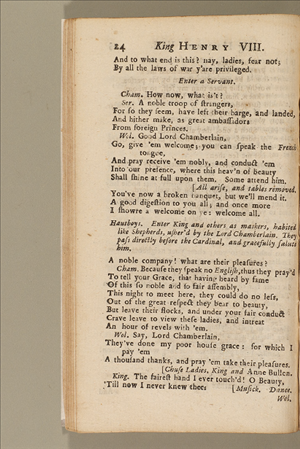 24 King HENRY VIII.
And to what end is this? nay, ladies, fear not;
By all the laws of war y'are privileged.
Enter a Servant.
Cham. How now, what is't?
Ser. A noble troop of strangers,
For so they seem, have left their barge, and landed,
And hither make, as great ambassadors
From foreign Princes.
Wol. Good Lord Chamberlain,
Go, give 'em welcome; you can speak the French
tongue,
And pray receive 'em nobly, and conduct 'em
Into our presence, where this heav'n of beauty
Shall shine at full upon them. Some attend him.
[All arise, and tables removed.
You've now a broken banquet, but we'll mend it.
A good digestion to you all; and once more
I showre a welcome on ye: welcome all.
Hautboys. Enter King and others as maskers, habited
like Shepherds, usher'd by the Lord Chamberlain. They
pass directly before the Cardinal, and gracefully salute
him.
A noble company! what are their pleasures?
Cham. Because they speak no English, thus they pray'd
To tell your Grace, that having heard by fame
Of this so noble and so fair assembly,
This night to meet here, they could do no less,
Out of the great respect they bear to beauty,
But leave their flocks, and under your fair conduct
Crave leave to view these ladies, and intreat
An hour of revels with 'em.
Wol. Say, Lord Chamberlain,
They've done my poor house grace: for which I
pay 'em
A thousand thanks, and pray 'em take their pleasures.
[Chuse Ladies, King and Anne Bullen.
King. The fairest hand I ever touch'd! O Beauty,
'Till now I never knew thee. [Musick. Dance.
Wol.